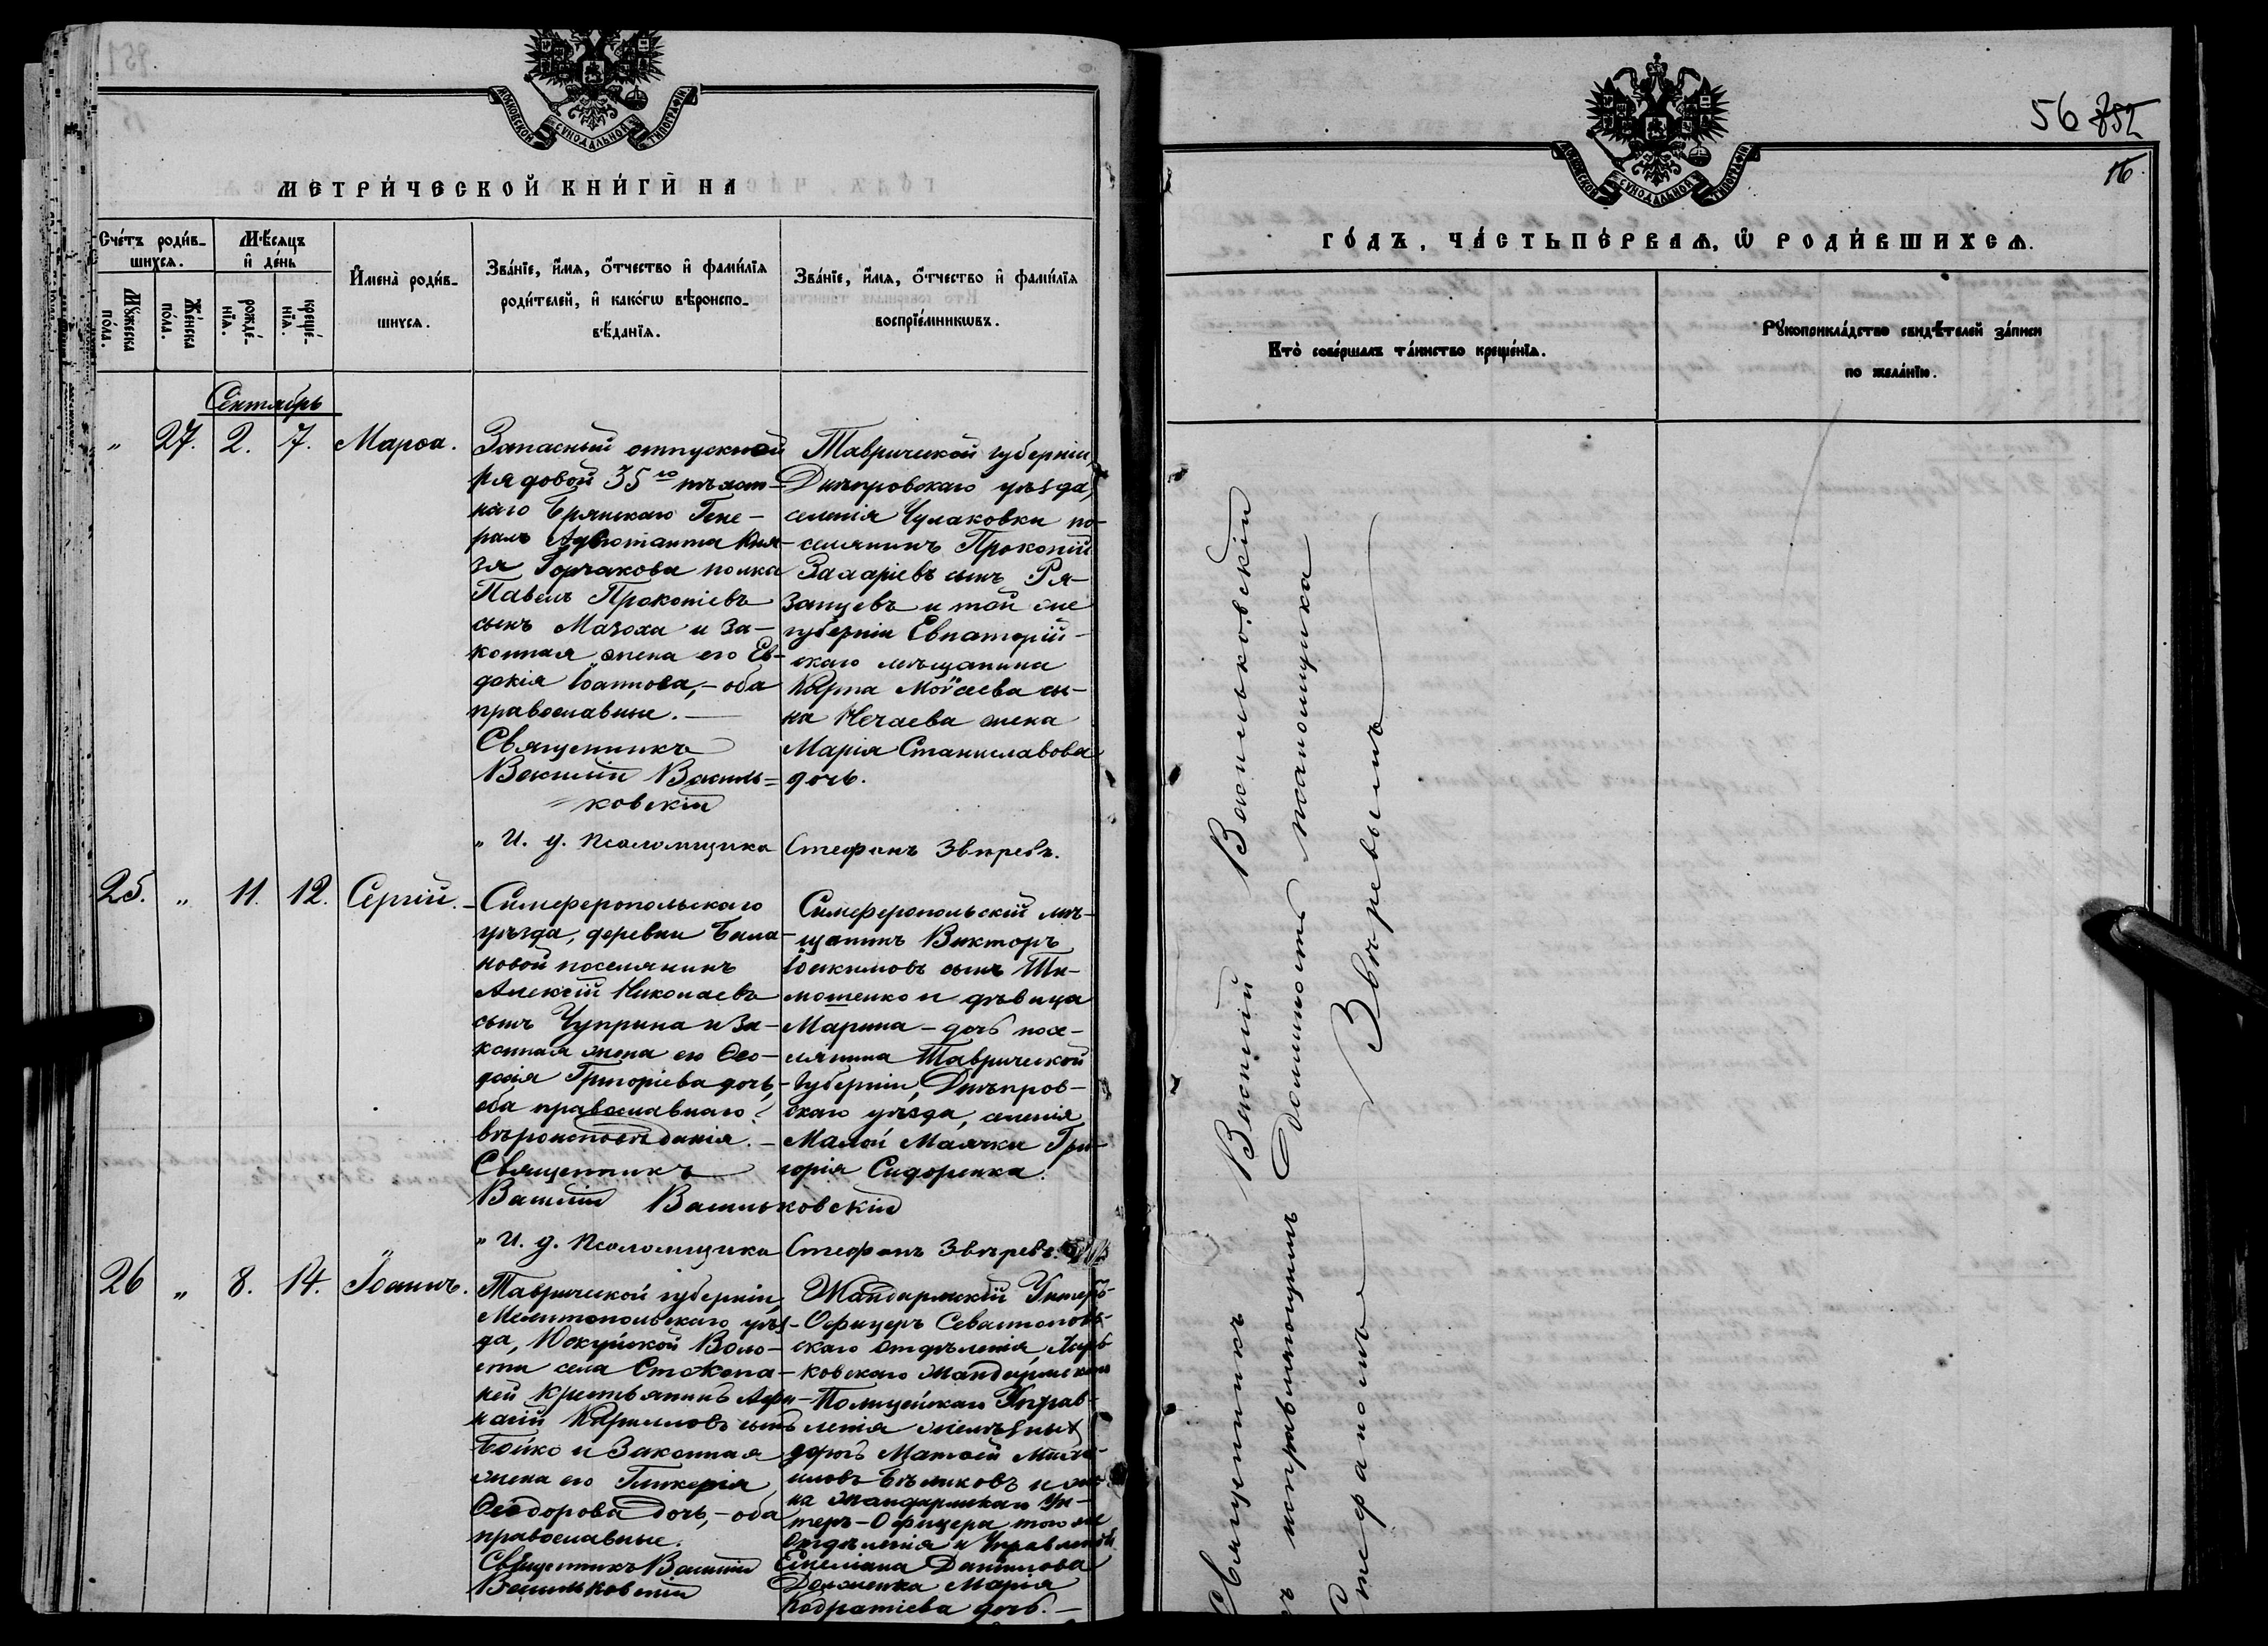 МОСКОВСКОЙ СѴНОДАЛЬНОЙ ТИПОГРАФІИ
МЕТРИ́ЧЕСКОЙ КНИ́ГИ НА
Сче́тъ роди́в-
шихсѧ.
Мꙋ́жеска по́ла.
Же́нска по́ла.
Мѣ́сѧцъ
и҆ де́нь
рожде́-
нїѧ.
креще́-
нїѧ.
И҆мена̀ роди́в-
шихсѧ.
Зва́нїе, и҆́мѧ, ѻ҆́тчество и҆ фами́лїѧ
роди́телей, и҆ како́гѡ вѣроиспо-
вѣ́данїѧ.
Зва́нїе, и҆́мѧ, ѻ҆́тчество и҆ фами́лїѧ
воспрїе́мникѡвъ.
Сентябрь
" 27. 2. 7. Марѳа.
Запасный отпускной
рядовой 35го пѣхот-
наго Брянскаго Гене-
ралъ Адъютанта Кня-
зя Горчакова полка
Павелъ Прокопіевъ
сынъ Мазоха и за-
конная жена его Ев-
докія Іоаннова,- оба
православные.
Священникъ
Василій Василь-
ковскій
" И. д. псаломщика Стефанъ Звѣревъ.
Таврической губерніи,
Днѣпровскаго уѣзда,
селенія Чулаковки по-
селянинъ Прокопій
Захаріевъ сынъ Ря-
занцевъ и той же
губерніи Евпаторій-
скаго мѣщанина
Карпа Моѵсеева сы-
на Нечаева жена
Марія Станиславова
дочь.
25. " 11. 12. Сергій.
Симферопольскаго
уѣзда, деревни Бала-
новой поселянинъ
Алексій Николаевъ
сынъ Чуприна и за-
конная жена его Ѳео-
досія Григоріева дочь,
оба православнаго
вѣроисповѣданія.
Священникъ
Василій Васильковскій
" И. д. псаломщика Стефанъ Звѣревъ.
Симферопольскій мѣ-
щанинъ Викторъ
Іоакимовъ сынъ Ти-
мошенко и дѣвица
Марина - дочь посе-
лянина Таврической
Губерніи, Днѣпров-
скаго уѣзда, селенія
Малой Маячки Гри-
горія Сидоренка.
26 " 8. 14. Іоаннъ.
Таврической губерніи,
Мелитопольскаго уѣз-
да, Юскуйской Воло-
сти села Стокопа-
ней крестьянинъ Аѳа-
насій Кирилловъ сынъ
Бойко и Законная
жена его Гликерія
Ѳеодорова дочь,- оба
православные.
Священникъ Василій
Васильковскій
Жандармскій Унтеръ-
Офицеръ Севастополь-
скаго отдѣленія Харь-
ковскаго Жандармскаго
Полицейскаго Управ-
ленія желѣзныхъ
дорогъ Матѳей Миха-
иловъ Бѣликовъ и же-
на жандармскаго Ун-
теръ-Офицера того же
Отдѣленія и Управленія
Емеліана Данилова
Марія
Кодратіева дочь.
МОСКОВСКОЙ СѴНОДАЛЬНОЙ ТИПОГРАФІИ
56 852
16.
ГО́ДЪ, ЧА́СТЬ ПЕ́РВАѦ, Ѡ҆ РОДИ́ВШИХСѦ.
Кто̀ соверша́лъ та́инство креще́нїѧ.
Рꙋкоприкла́дство свидѣ́телей за́писи
по жела́нїю.
Священникъ Василій Васильковскій
съ исправляющимъ должность псаломщика
Стефаномъ Звѣревымъ